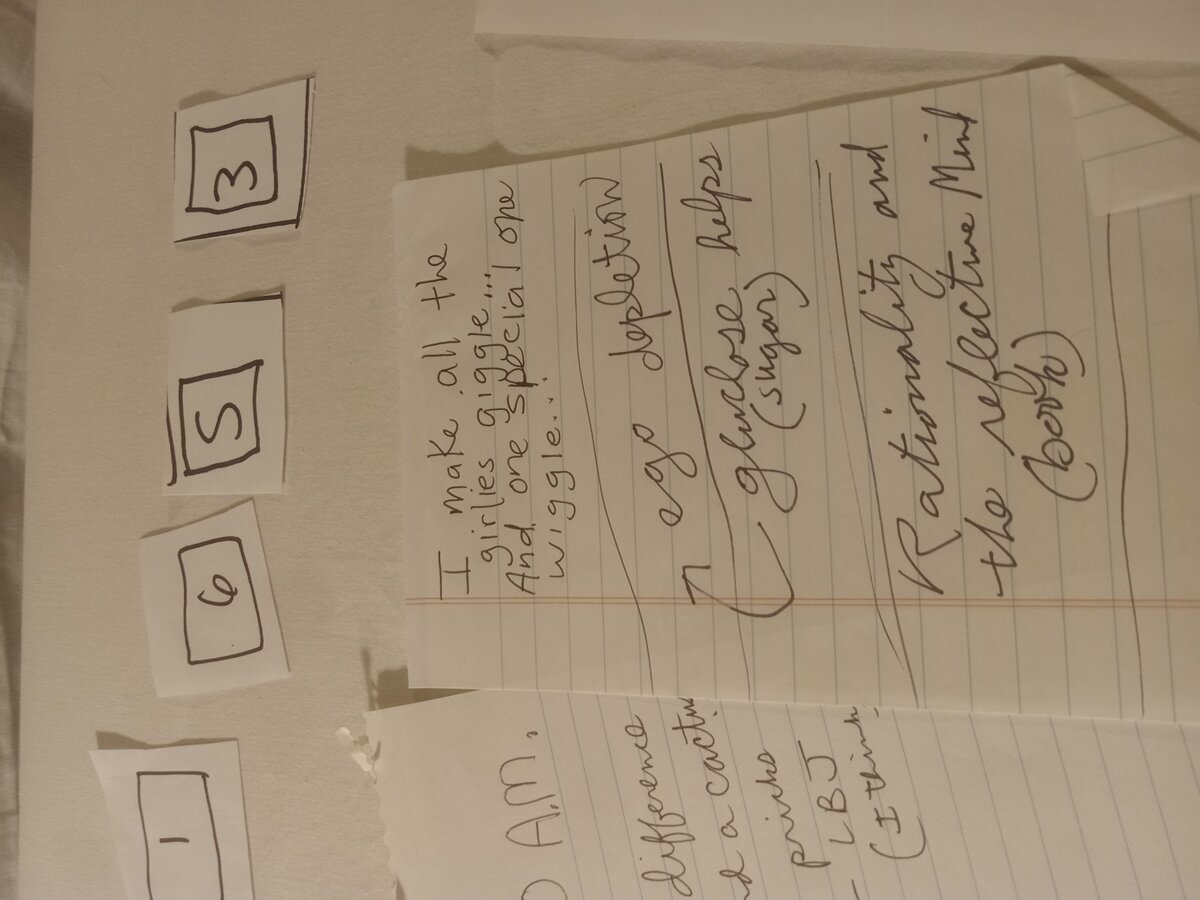 1
6
5
3
A.M.
difference
a
pricks
- LBJ
(I think
I make all the
girlies giggle...
And one special one
wiggle...
ego depletion
gluclose helps
(sugar)
Rationality and
the reflective Mind
(book)